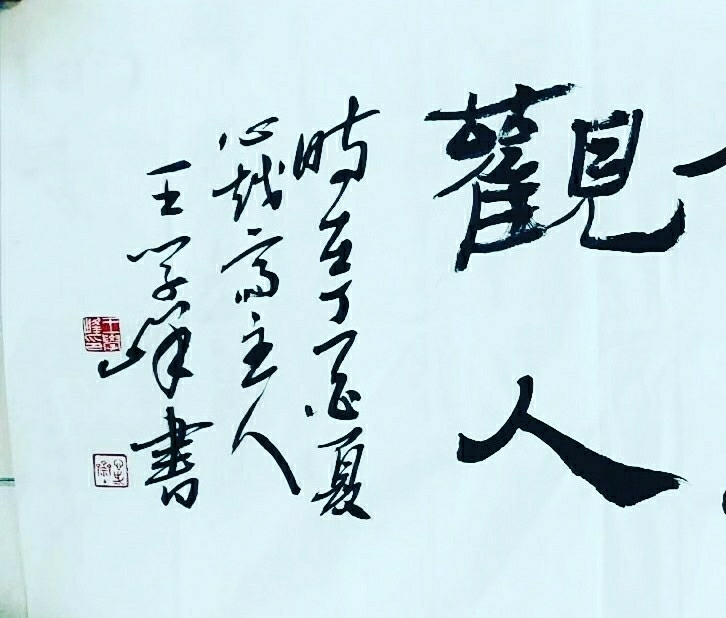 觀人
時在丁酉夏
心越齋主人
王学峰書
王學峰印